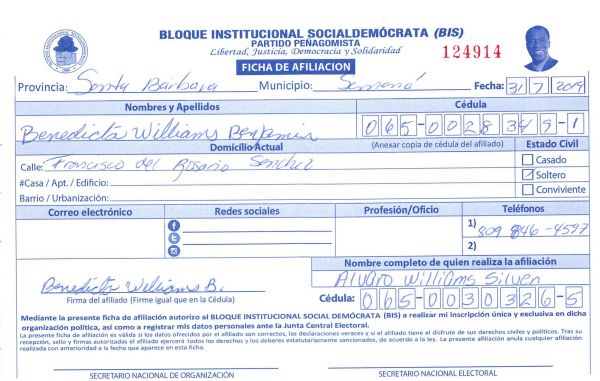 BLOQUE INSTITUCIONAL SOCIALDEMÓCRATA (BIS)
PARTIDO PEÑAGOMISTA
Libertad, Justicia, Democracia y Solidaridad
124914
FICHA DE AFILIACION
Provincia: Santa Bárbara Municipio: Samaná Fecha: 31/7/2019
Nombres y Apellidos Cédula
Benedicta Williams Benjamin 065-0028349-1
Domicilio Actual (Anexar copia de cédula del afiliado) Estado Civil
Calle: Francisco del Rosario Sanchez Casado
#Casa / Apt. / Edificio: Soltero
Barrio / Urbanización: Conviviente
Correo electrónico Redes sociales Profesión/Oficio Teléfonos
1) 809 846-4597
2)
Nombre completo de quien realiza la afiliación
Benedicta Williams B. Alvaro Williams Silven
Firma del afiliado (Firme igual que en la Cédula) Cédula: 065-0030326-5
Mediante la presente ficha de afiliación autorizo al BLOQUE INSTITUCIONAL SOCIAL DEMÓCRATA (BIS) a realizar mi inscripción única y exclusiva en dicha
organización política, así como a registrar mis datos personales ante la Junta Central Electoral.
La presente ficha de afiliación es válida si los datos ofrecidos por el afiliado son correctos, las declaraciones veraces y si el afiliado tiene el disfrute de sus derechos civiles y políticos. Tras su
recepción, sello y firmas autorizadas el afiliado ejercerá todos los derechos y los deberes estatutariamente sancionados, de acuerdo a la ley. La presente afiliación anula cualquier afiliación
realizada con anterioridad a la fecha que aparece en esta ficha.
SECRETARIO NACIONAL DE ORGANIZACIÓN SECRETARIO NACIONAL ELECTORAL